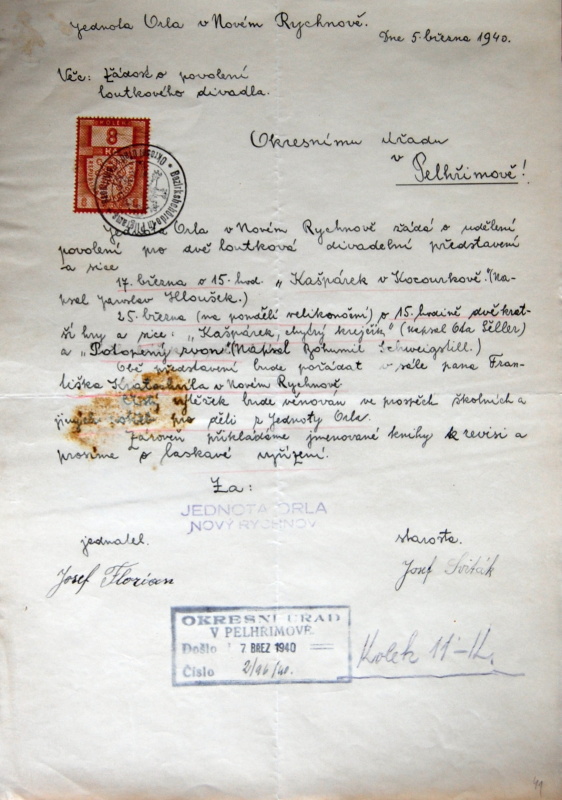 Jednota Orla v Novém Rychnově.
Dne 5. března 1940.
Věc: Žádost o povolení
loutkového divadla.
Okresnímu úřadu
v
Pelhřimově!
8
Jednota Orla v Novém Rychnově žádá o udělení
povolení pro dvě loutková divadelní představení
a sice
17. března o 15. hod. „Kašpárek v Kocourkově." (Na-
psal Jaroslav Hloušek.)
25. března (na pondělí velikonoční) o 15. hodině dvě krat-
ší hry a sice: „Kašpárek, chytrý krejčík" (napsal Ota Séller)
a „Potopený zvon". (Napsal Bohumil Schweigstill.)
Obě představení bude pořádat v sále pana Fran-
tiška Kratochvíla v Novém Rychnově.
Čistý výtěžek bude věnován ve prospěch školních a
jiných potřeb pro děti z Jednoty Orla.
Zároveň přikládáme jmenované knihy k revisi a
prosíme o laskavé vyřízení.
Za:
JEDNOTA ORLA
NOVÝ RYCHNOV
jednatel.
starosta
Josef Florian
Josef Sviták
OKRESNÍ ÚŘAD
V PELHŘIMOVĚ
Došlo 7 BŘEZ 1940
Číslo 2/96/40.
Kolek 11-K.
49